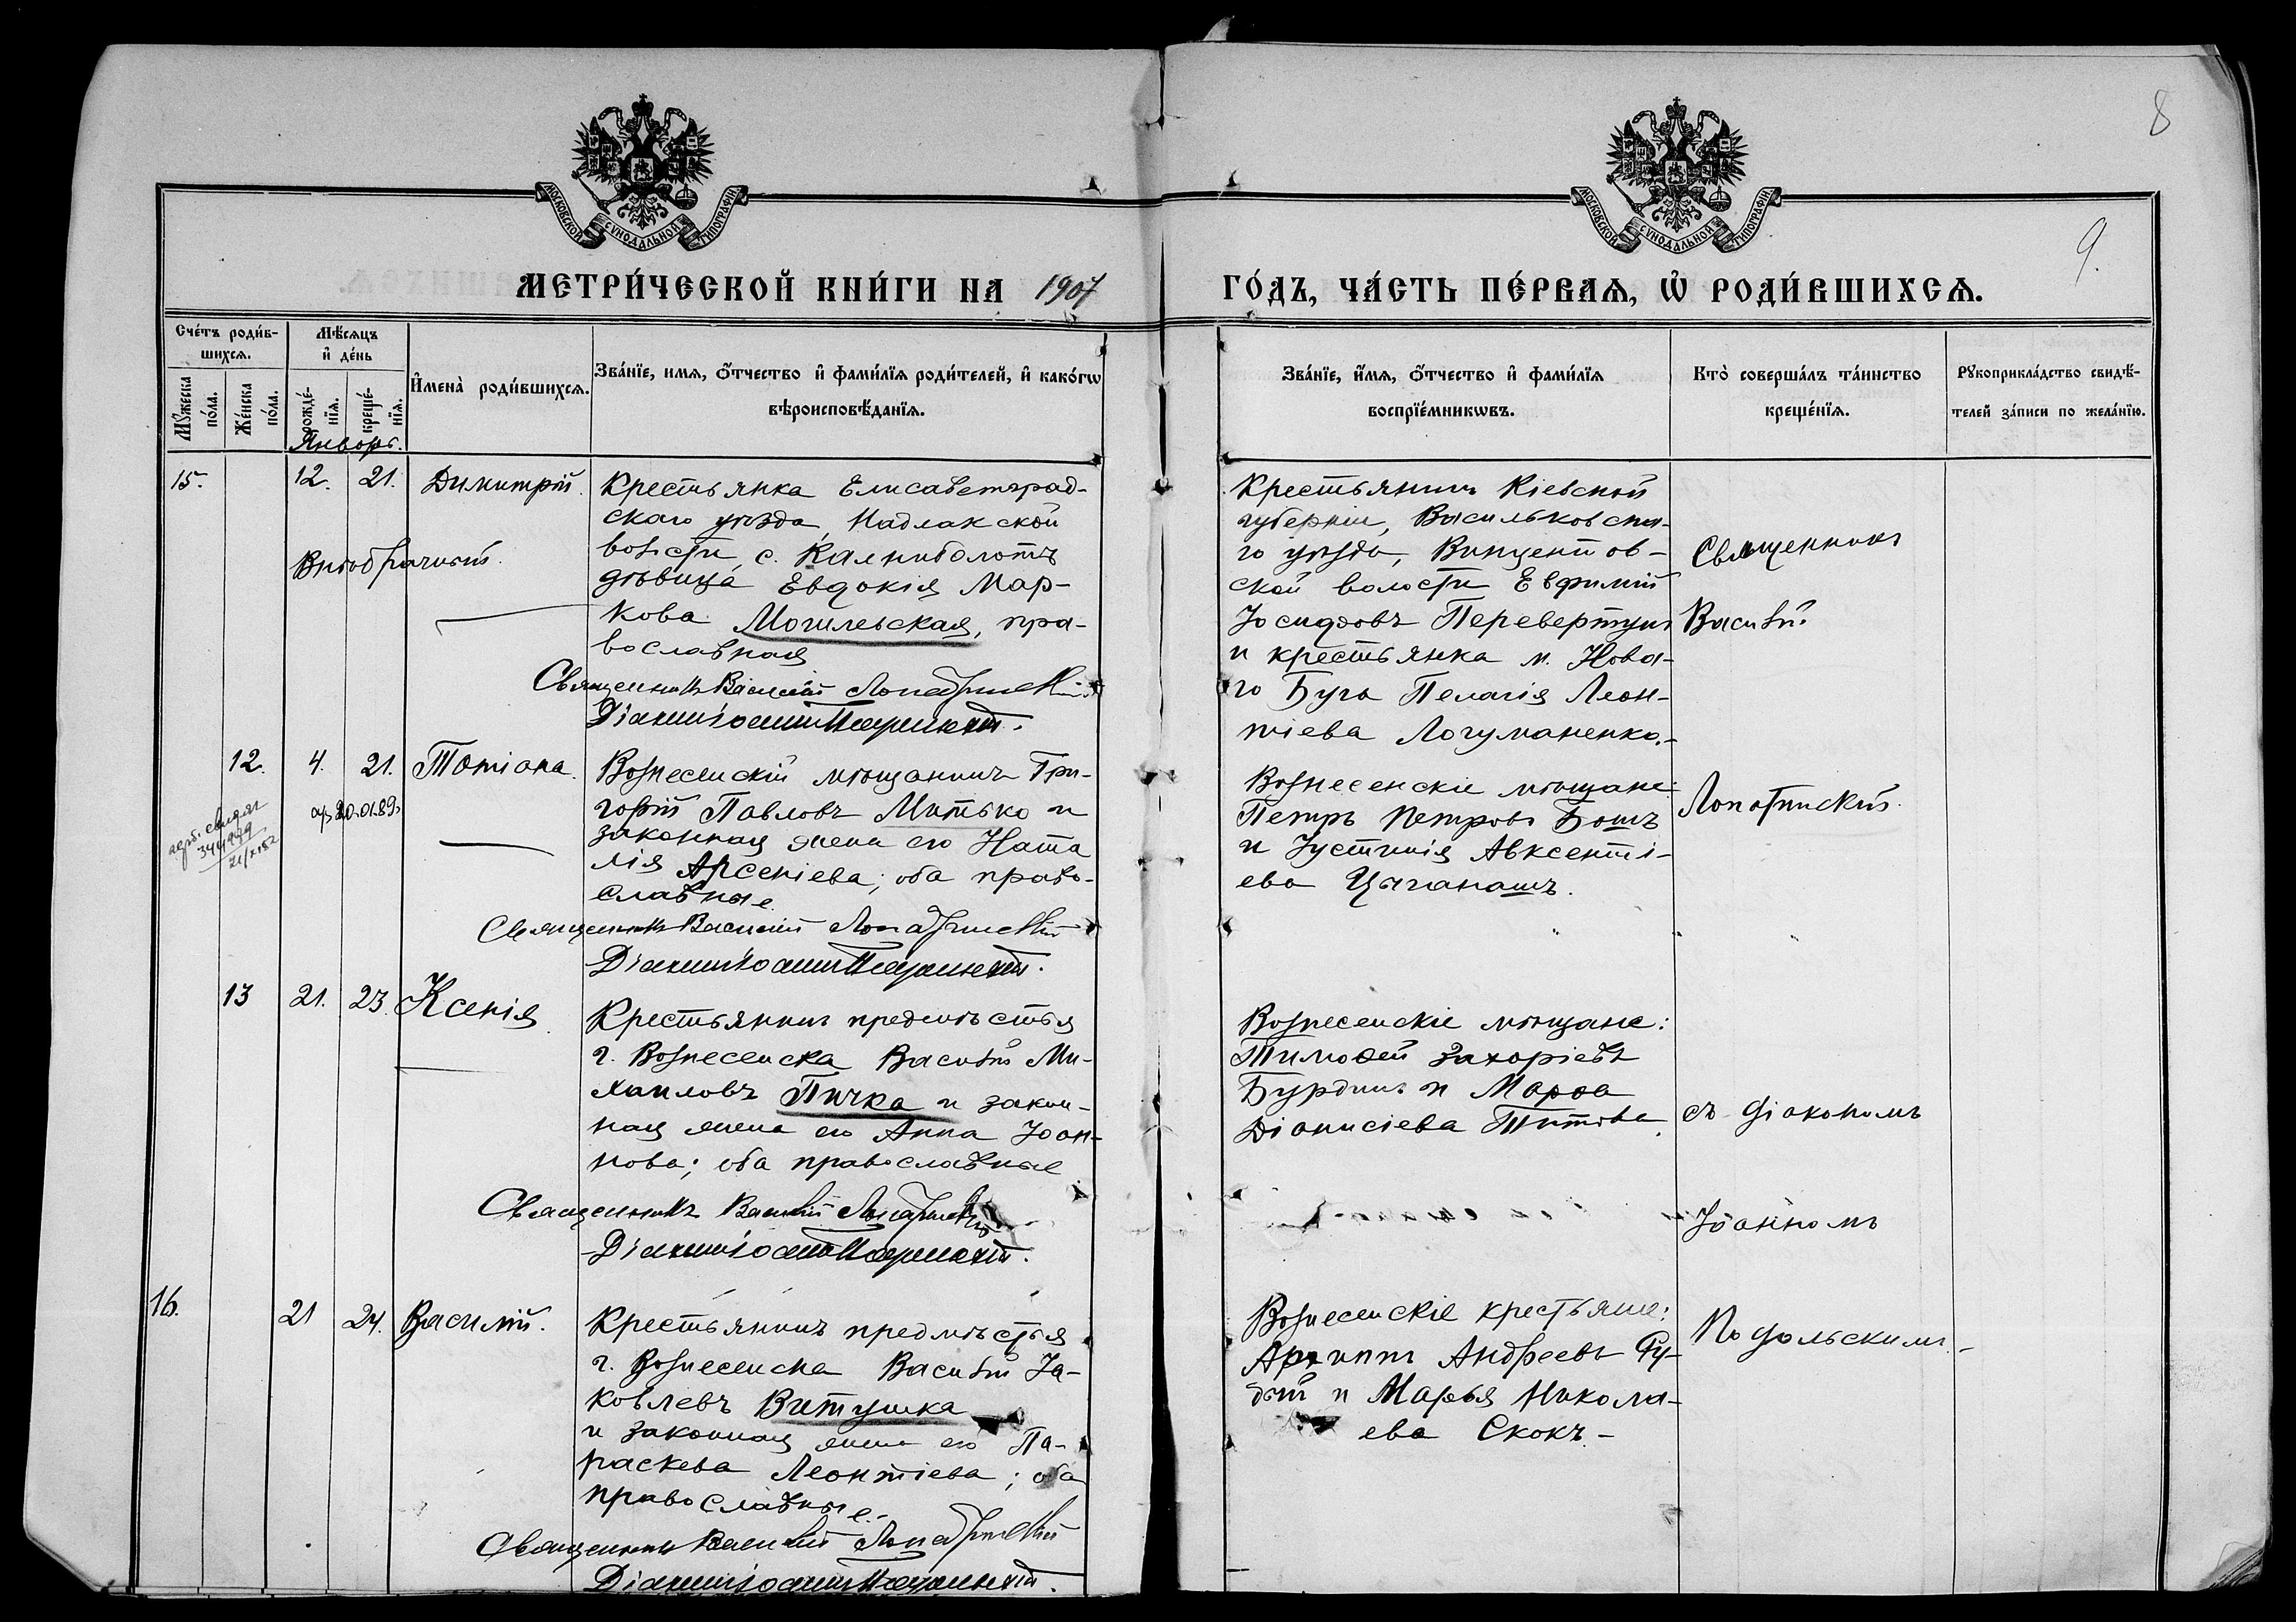 8
9.
МОСКОВСКОЙ СѴНОДАЛЬНОЙ ТИПОГРАФІИ
МОСКОВСКОЙ СѴНОДАЛЬНОЙ ТИПОГРАФІИ
МЕТРИ́ЧЕСКОЙ КНИ́ГИ НА 1907 ГО́ДЪ, ЧА́СТЬ ПЕ́РВАѦ, Ѡ҆ РОДИ́ВШИХСѦ.
Сче́тъ роди́в-
шихсѧ.
Мꙋжеска по́ла.
Же́нска по́ла.
Мѣ́сѧцъ
и҆ де́нь
рожде́-
нїѧ.
креще́-
нїѧ.
И҆мена̀ роди́вшихсѧ.
Зва́нїе, имѧ, ѻ҆́тчество и҆ фами́лїѧ роди́телей, и҆ како́гѡ
вѣроисповѣ́данїѧ.
Зва́нїе, и҆́мѧ, ѻ҆́тчество и҆ фами́лїѧ
воспрїе́мникѡвъ.
Кто̀ соверша́лъ та́инство
креще́нїѧ.
Рꙋкоприкла́дство свидѣ́-
телей за́писи по жела́нїю.
Январь.
15.
12.
21.
Димитрій.
Внѣбрачный.
Крестьянка Елисаветград-
скаго уѣзда, Надлакской
волости, с. Калниболотъ
дѣвица Евдокія Мар-
кова Могилевская, пра-
вославная
Священникъ Василій Лопатинскій
Діаконъ Іоаннъ Подольскій.
Крестьянинъ Кіевской
губерніи, Васильковска-
го уѣзда, Винцентов-
ской волости Евфимій
Іосифовъ Перевертунъ
и крестьянка м. Нова-
го Буга Пелагія Леон-
тіева Логуманенко.-
Священникъ
Василій
12.
4.
21.
Татіана.
ар 20.01.89г
344979
21/X 52
Вознесенскій мѣщанинъ Гри-
горій Павловъ Митько и
законная жена его Ната
лія Арсеніева; оба право-
славные
Священникъ Василій Лопатинскій
Діаконъ Іоаннъ Подольскій.
Вознесенскіе мѣщане:
Петръ Петровъ Бошъ
и Іустинія Авксенті-
ева Цыганашъ.
Лопатинскій
13
21.
23.
Ксенія.
Крестьянинъ предмѣстья
г. Вознесенска Василій Ми-
хаиловъ Пичка и закон-
ная жена его Анна Іоан-
нова; оба православные
Священникъ Василій Лопатинскій
Діаконъ Іоаннъ Подольскій.
Вознесенскіе мѣщане:
Тимоѳей Захаріевъ
Бурдинъ и Марѳа
Діонисіева Титова.
съ діакономъ
Іоанномъ
16.
21
24.
Василій.
Крестьянинъ предмѣстья
г. Вознесенска Василій Іа-
ковлевъ Витушка
и законная жена его Па-
раскева Леонтіева; оба
православные.-
Священникъ Василій Лопатинскій
Діаконъ Іоаннъ Подольскій.
Вознесенскіе крестьяне:
Архиппъ Андреевъ Ру-
дый и Марья Никола-
ева Скокъ.-
Подольскимъ.-